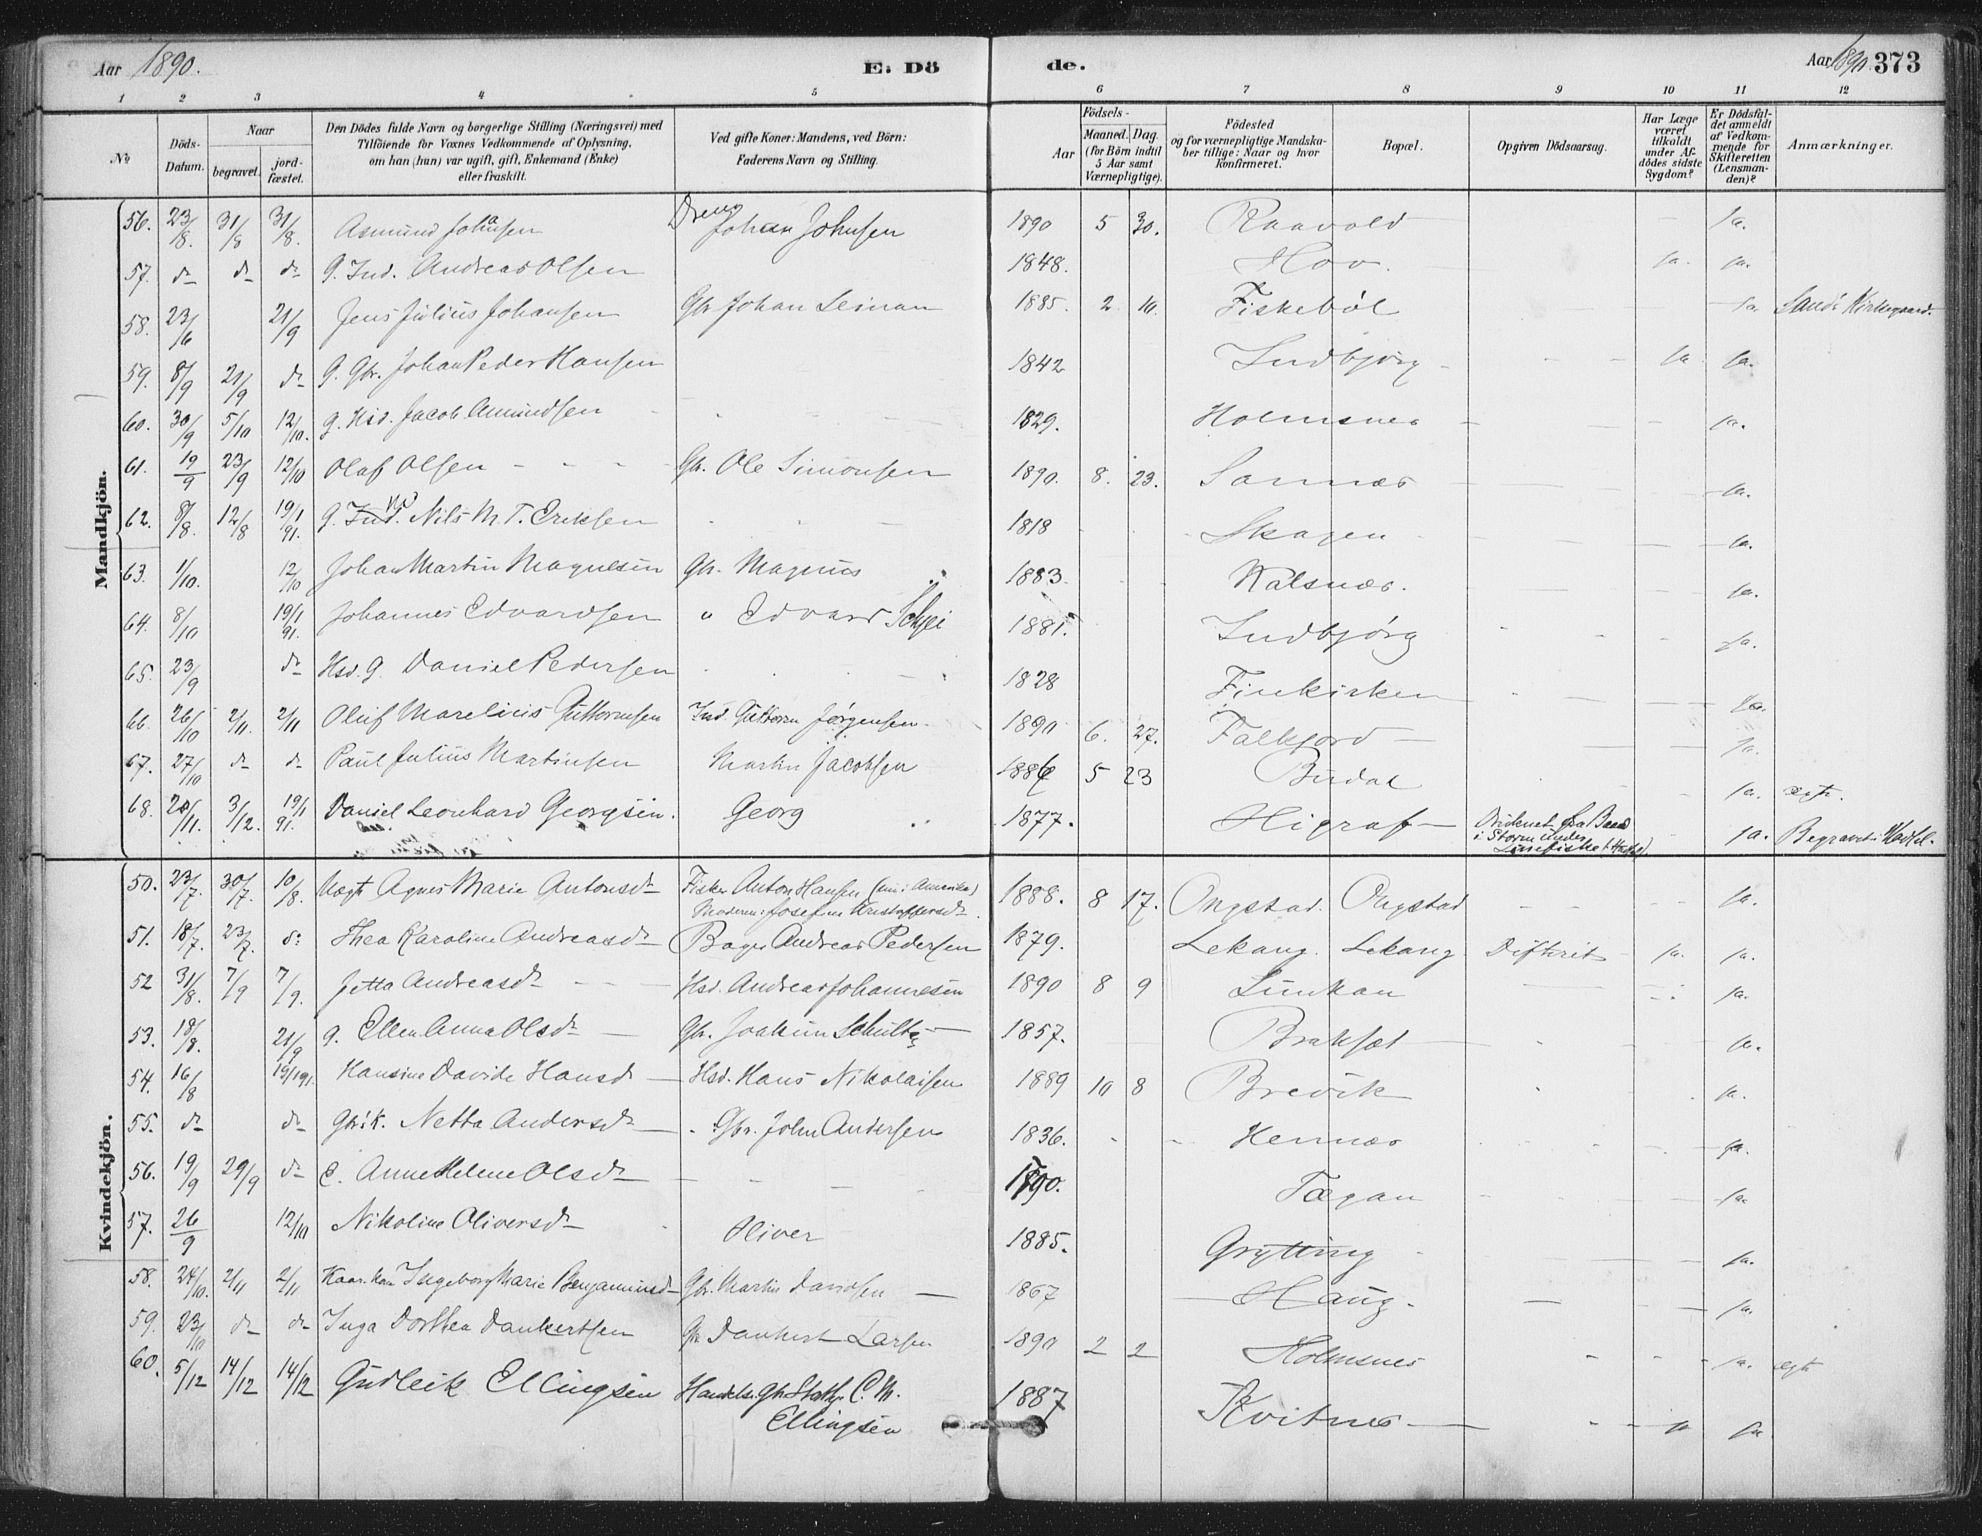 Aar 1890. E. Dö de. Aar 1890. 373
1 2 3 4 5 6 7 8 9 10 11 12
No
Döds-Datum.
Naar
begravet.
jord-fæstet.
Den Dödes fulde Navn og borgerlige Stilling (Næringsvei) med
Tilföiende for Voxnes Vedkommende af Oplysning,
om han (hun) var ugift, gift, Enkemand (Enke)
eller fraskilt.
Ved gifte Koner: Mandens, ved Börn:
Faderens Navn og Stilling.
Födsels-
Aar
Maaned. Dag.
(for Börn indtil
5 Aar samt
Værnepligtige).
Födested
og for værnepligtige Mandska-
ber tillige: Naar og hvor
konfirmeret.
Bopæl.
Opgiven Dödsaarsag.
Har Læge
været
tilkaldt
under Af-
dödes sidste
Sygdom?
Er Dödsfal-
det anmeldt
af Vedkom-
mende for
Skifteretten
(Lensman-
den)?
Anmærkninger.
Mandkjön.
56. 23/8. 31/8 31/8. Asmund Johansen Dreng Johan Johnsen 1890 5 30. Raavold ja.
57. do do do G. Ind. Andreas Olsen 1848. Hov. ja. ja.
58. 23/6 21/9 Jens Julius Johansen Gbr. Johan Leinan 1885. 2. 10. Fiskeböl ja. Sands Kirkegaard.
59. 8/9 21/9 do G. Gbr. Johan Peder Hansen 1842 Indbjörg ja ja.
60. 30/9 5/10 12/10. g. Hsd. Jacob Amundsen 1829. Holmsnes ja.
61. 19/9 23/9 12/10 Olaf Olsen Gbr. Ole Simonsen 1890. 8. 23. Sannes ja.
62. 8/8. 12/8 19/1 91. g. Ind. Nils M. T. Eriksen 1818 Skagen ja.
63. 1/10. 12/10 Johan Martin Magnesen Gbr. Magnus 1883. Kalsnes. ja.
64. 8/10 19/1 91. Johannes Edvardsen " Edvard Schjei 1881. Indbjörg ja.
65. 23/9 do Hsd. g. Daniel Pedersen 1828 Finkirken ja.
66. 26/10 2/11. 2/11 Oluf Marelius Guttormsen Ind. Guttorm Jørgensen 1890 6. 27. Falkfjord ja.
67. 27/10 do do Paul Julius Martinsen Martin Jacobsen 1886 5 23 Burdal ja. ægte.
68. 20/11. 3/12. 19/1 91. Daniel Leonhard Georgsen. Georg 1877. Higraf Druknet fra Baad
i Storm under
Linefiske ja. Begravet i Hadsel.
Kvindekjön.
50. 23/7. 30/7. 10/8. Uægt Agnes Marie Antonsdr Fisker Anton Hansen (nu i Amerika)
Moderen: Josefine Kristoffersdr. 1888. 8 17. Ongstad. Ongstad ja.
51. 18/7. 23/7. do Thea Karoline Andreasdr Bager Andreas Pedersen 1879. Lekang. Lekang Difterit ja. ja.
52 31/8. 7/9 7/9. Jetta Andreasdr Hsd. Andreas Johannesen 1890 8 9 Sunkan ja.
53. 18/8. 21/9 g. Ellen Anna Olsdr Gbr. Joakim Schultz 1857. Braksæt ja.
54. 16/8 19/1 91. Hansine Davide Hansdr Hsd. Hans Nikolaisen 1889 10 8 Brevik ja.
55. do do Gbr.k. Netta Andersdr Gbr. John Andersen 1836. Hennes ja.
56. 19/9 29/9 do E. Anne Helene Olsdr 1790. Tægan ja.
57. 26/9 12/10 Nikoline Oliversdr Oliver 1885. Grytting ja.
58. 24/10. 2/11 2/11 Ingeborg Marie Benjaminsdr Gbr. Martin Davidsen 1867 Haug. ja.
59. 23/10 do do Inga Dorthea Dankertsen Gbr Dankert Larsen 1890 2 2 Holmsnes ja. ægte
60. 5/12 14/12 14/12 Gudleik Ellingsen Handelsm. C. M.
Ellingsen 1887 Kvitnes ja ja